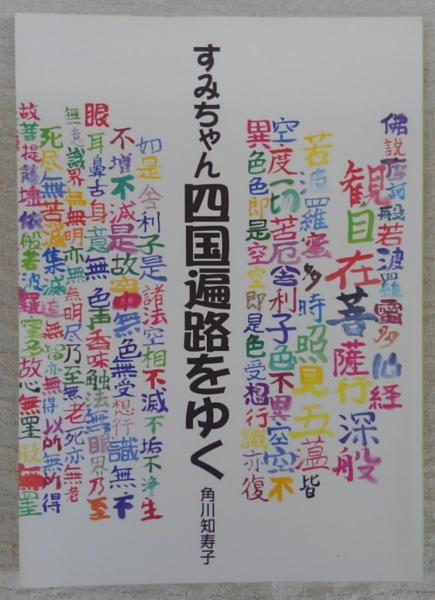 佛説摩訶般若波羅蜜多心経
観自在菩薩行深般
若波羅蜜多時照見五蘊皆
空度一切苦厄舎利子色不異空空不
異色色即是空空即是色受想行識亦復
すみちゃん四国遍路をゆく
角川知寿子
如是舎利子是諸法空相不滅不垢不浄生
不増不減是故空中無色無受想行識無不
眼耳鼻舌身意無色声香味触法無眼界乃至
無意識界無無明亦無無明尽乃至無老死亦無老
死尽無苦集滅道無智亦無得以所無所得
故菩提薩埵依般若波羅蜜多故心無罣礙無罣